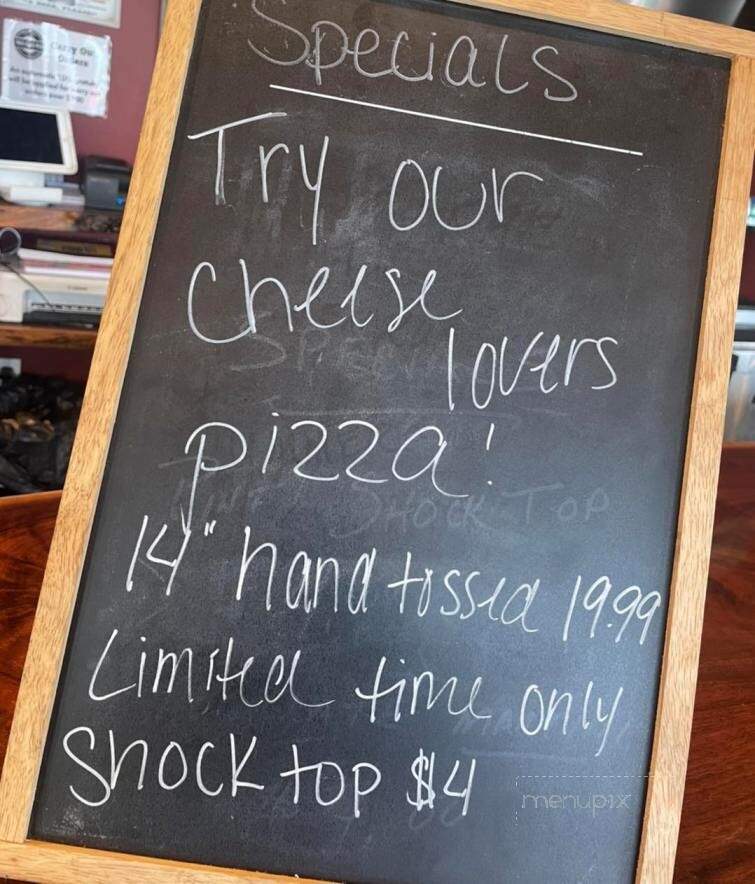 Carry Out
Orders
Specials
Try our
cheese
lovers
pizza!
14" hand tossed 19.99
Limited time only
Shock top $4
SHOCK TOP
menupix